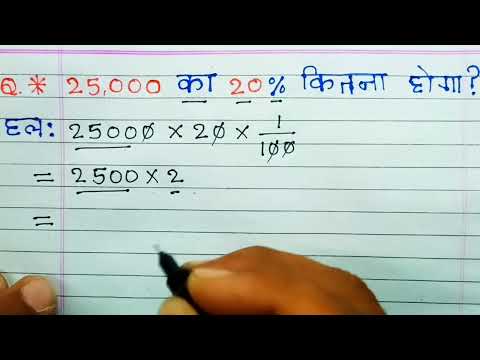 Q.* 25,000 का 20% कितना होगा?
हल: 25000 × 20 × 1/100
= 2500 × 2
=